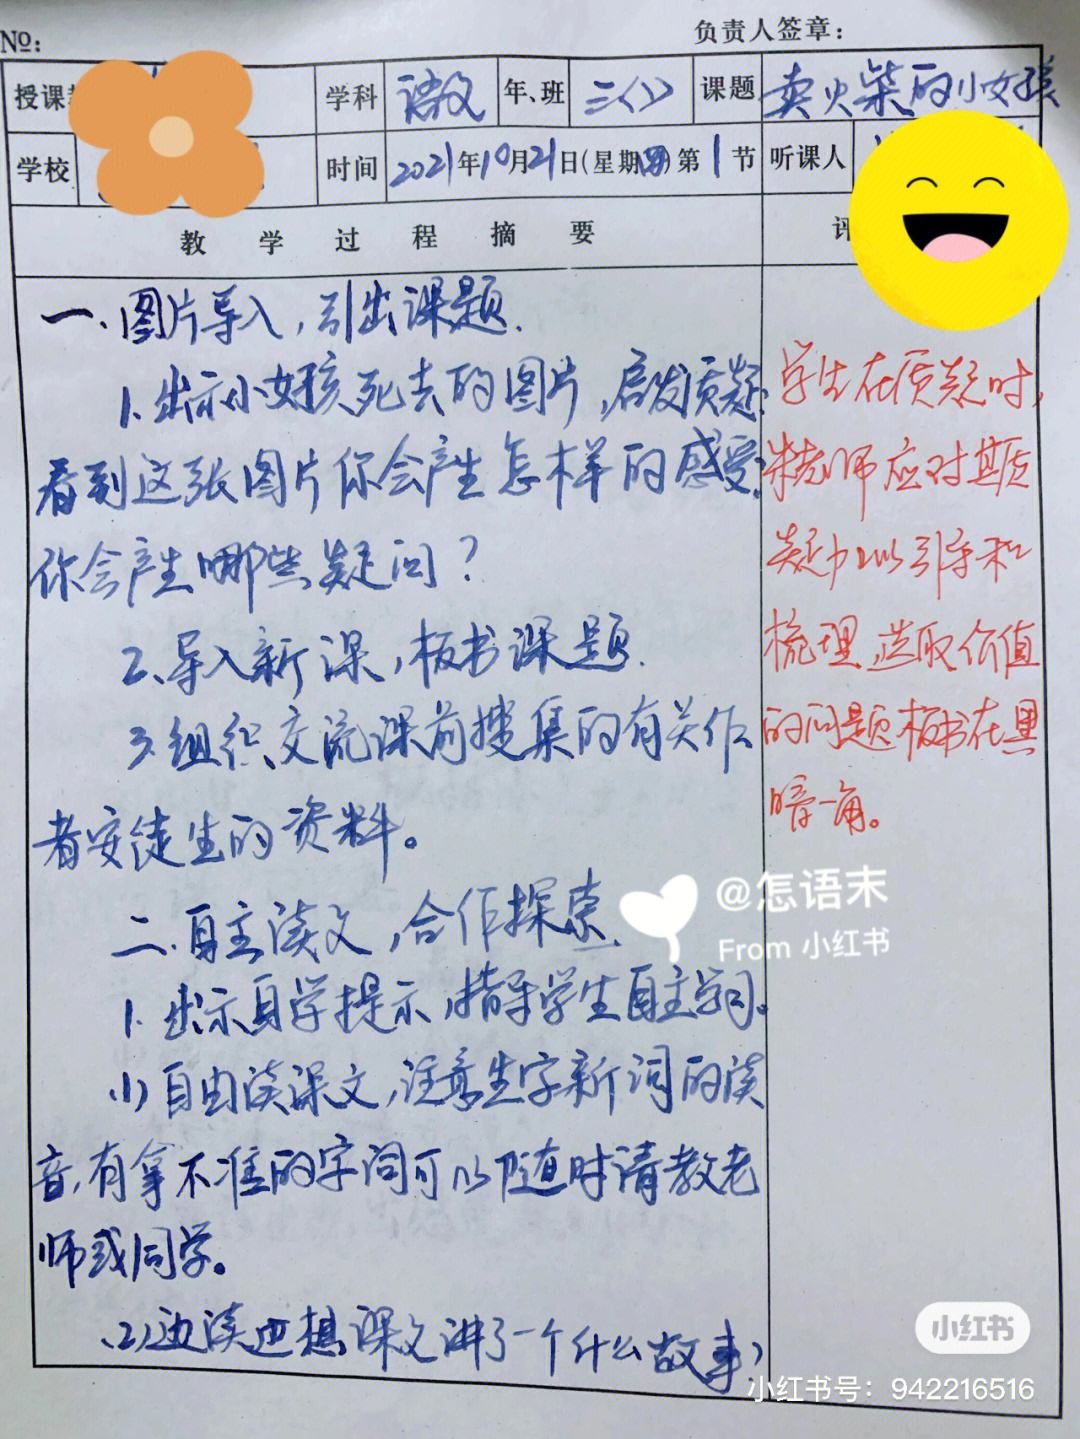 №:
负责人签章：
授课
学科 语文 年、班 三(1) 课题 卖火柴的小女孩
学校
时间 2021年10月21日(星期四)第1节 听课人
教学过程摘要
评
一、图片导入，引出课题.
1. 出示小女孩死去的图片，启发质疑：
看到这张图片你会产生怎样的感受？
你会产生哪些疑问？
2、导入新课，板书课题.
3.组织交流课前搜集的有关作
者安徒生的资料。
二.自主读文，合作探索.
1. 出示自学提示，指导学生自主学习。
(1)自由读课文，注意生字新词的读
音，有拿不准的字词可以随时请教老
师或同学。
(2)边读边想课文讲了一个什么故事？
学生在质疑时，
老师应对其质
疑加以引导和
梳理，选取价值
的问题板书在黑
暗一角。
@怎语末
From 小红书
小红书
小红书号：942216516